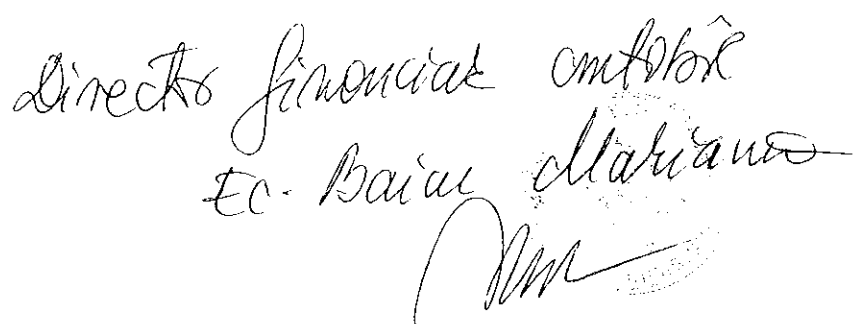 Director financiar contabil
Ec. Baiac Mariana